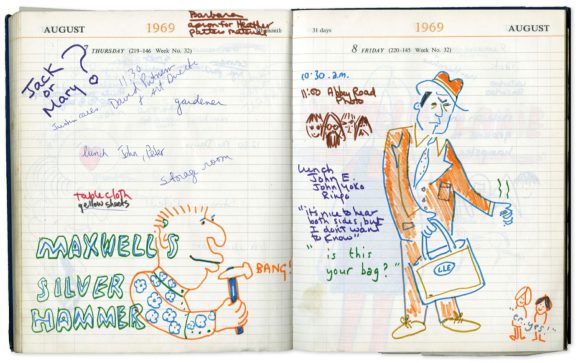 Barbara
apron for Heather
AUGUST 1969
7 THURSDAY (219-146 Week No. 32)
Jack
or
Mary?
11.30
David Puttnam
+ art Director
gardener
lunch John, Peter
storage room
table cloth
yellow sheets
MAXWELL'S
SILVER
HAMMER
BANG!
31 days 1969 AUGUST
8 FRIDAY (220-145 Week No. 32)
10.30 a.m.
11.00 Abbey Road
Photo
lunch
John E.
John/Yoko
Ringo
"it's nice to hear
both sides, but
I don't want
to know"
"is this
your bag?"
"er.. yes!"